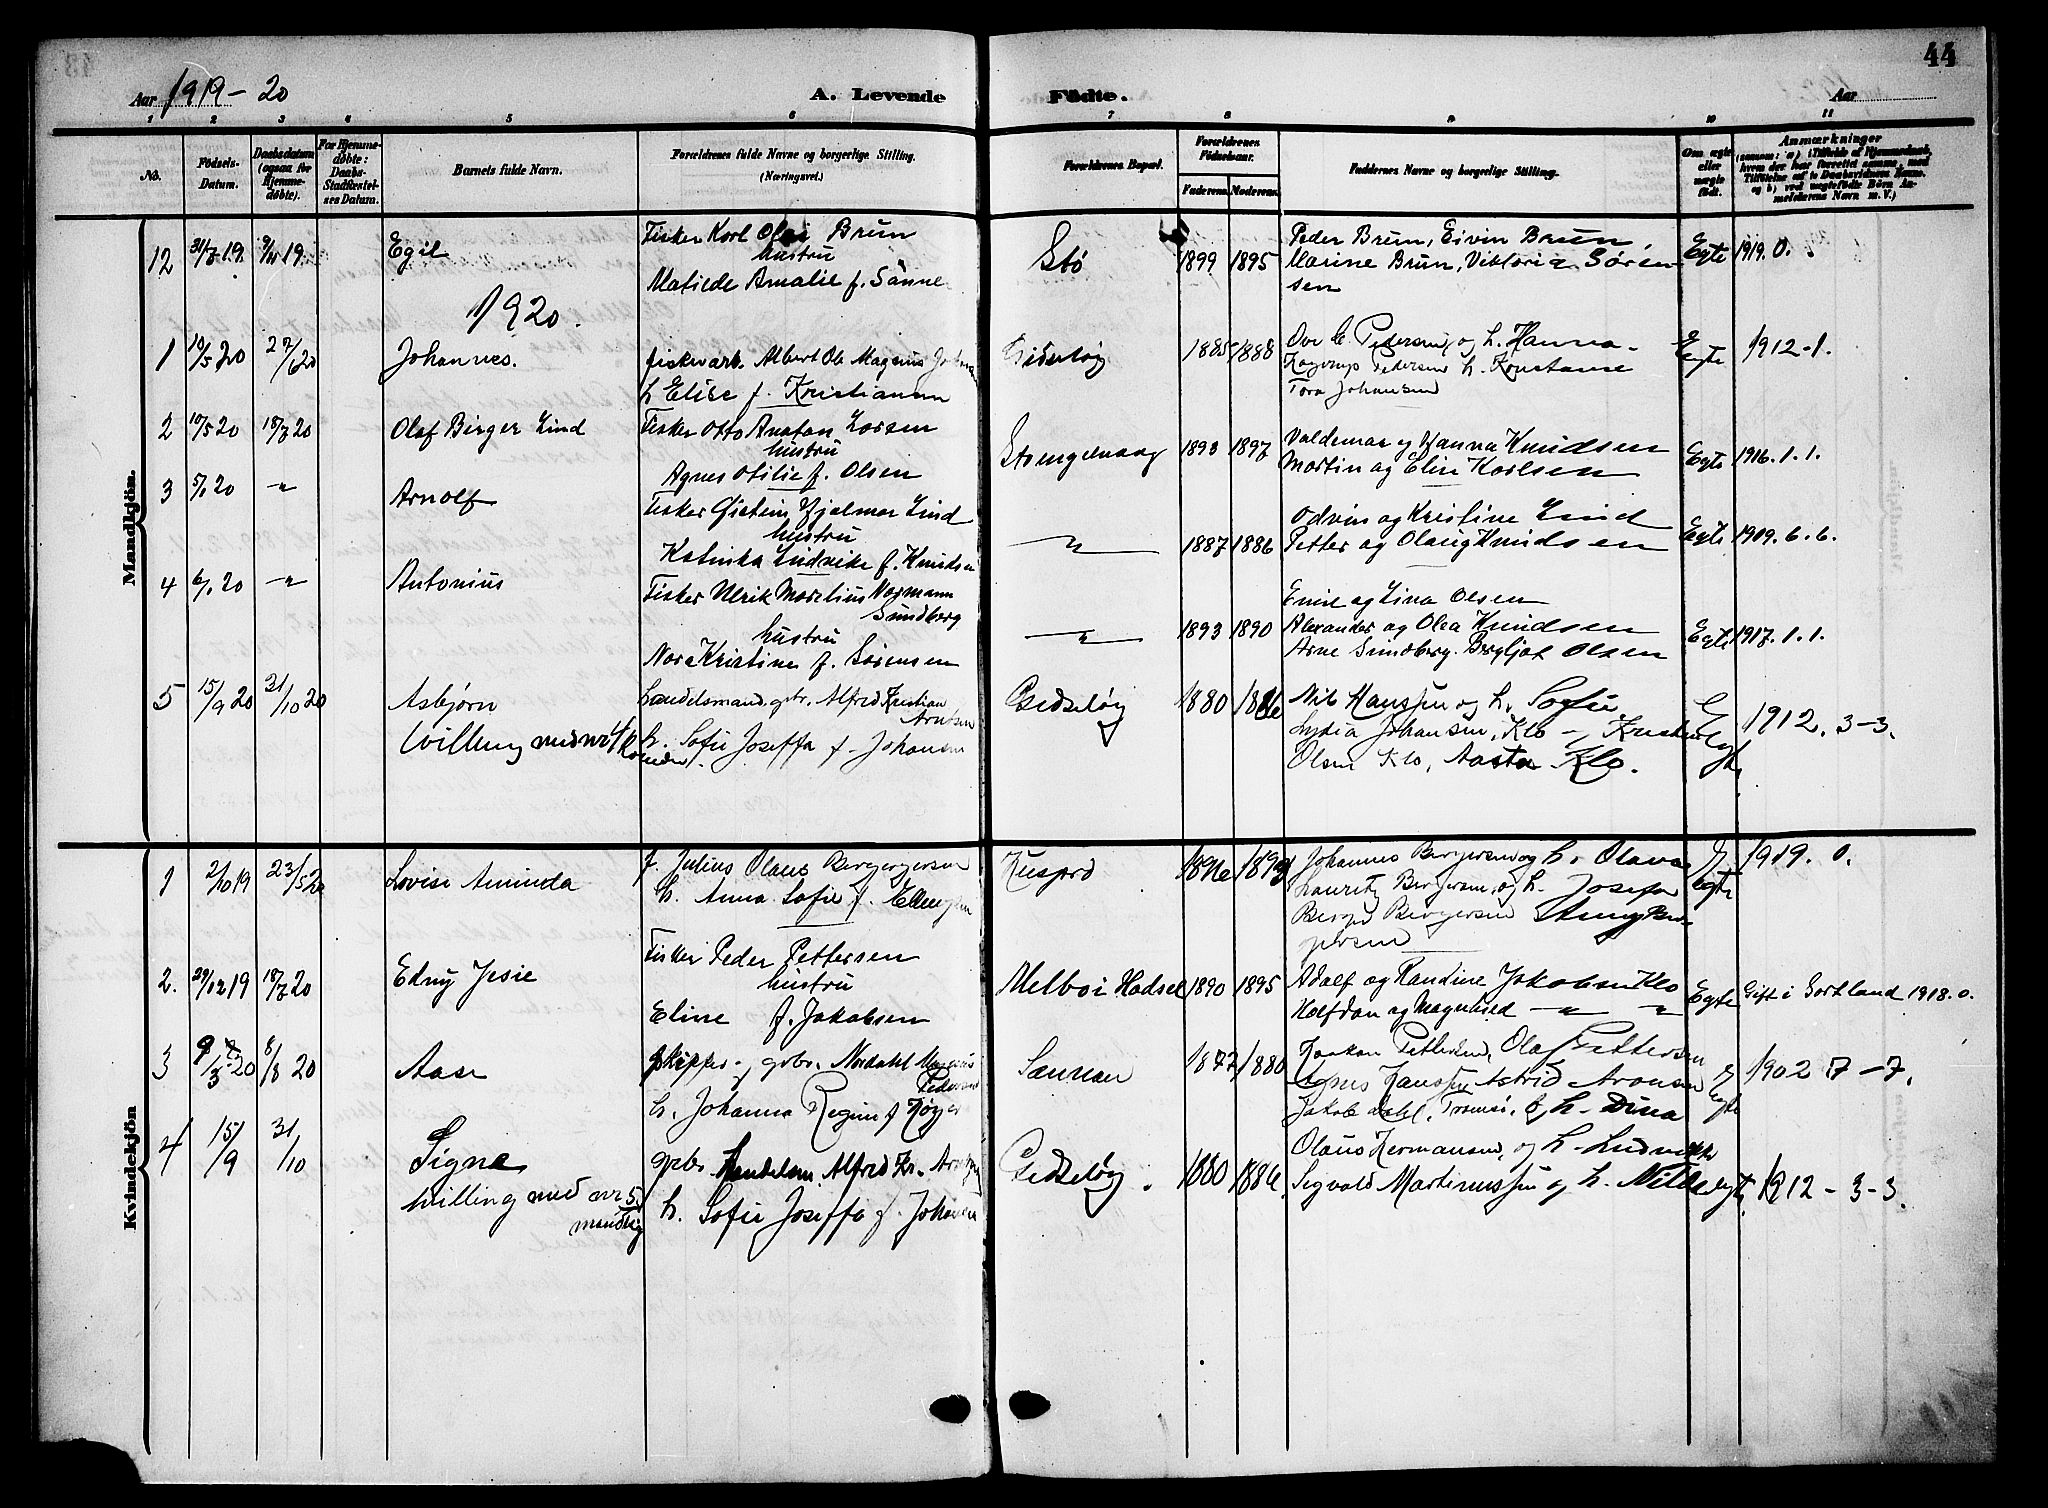 44
Aar 1919-20
A. Levende
Födte.
Aar
1 2 3 4 5 6 7 8 9 10 11
No.
Födsels-
Datum.
Daabsdatum
(ogsaa for
Hjemme-
döbte).
For Hjemme-
döbte:
Daabs-
Stadfæstel-
ses Datum.
Barnets fulde Navn.
Forældrenes fulde Navne og borgerlige Stilling.
(Næringsvei.)
Forældrenes Bopæl.
Forældrenes
Födselsaar.
Faderens.
Moderens.
Faddernes Navne og borgerlige Stilling.
Om ægte
eller
uægte
födt.
Anmærkninger
Mandkjön.
12 31/8 19. 9/11 19 Egil
Fisker Karl Olai Brun
hustru
Matilde Amalie f. Sånne
Stø 1899 1895
Peder Brun, Eivin Brun,
Marine Brun, Viktoria Søren
sen
Egte 1919. 0.
1920.
1 19/5 20 27/6 20 Johannes.
fiskerarb. Albert Ole Magnus
h Elise f. Kristiansen
Gidsløy 1885 1888
Ove C. Pedersen, og h. Hanna
Pedersen h. Konstanse
Tora Johansen
Egte 1912-1.
2 10/5 20 18/7 20 Olaf Birger Lind
Fisker Otto Anatan Larsen
hustru
Agnes Otilie f. Olsen
Stengelvaag 1893 1897
Valdemar og Hanna Knudsen
Martin og Elise Karlsen
Egte 1916.1.1.
3 5/1 20 -"- Arnolf
Fisker Øistein Hjalmar Lind
hustru
Katinka Ludvike f. Knudsen
-"- 1887 1886
Odvin og Kristine Lind
Petter og Olaug Knudsen
Egte 1909.6.6.
4 6/1 20 -"- Antonius
Fisker Ulrik Morelius Normann
Sundberg
hustru
Nora Kristine f. Sørensen
-"- 1893 1890
Emil og Lina Olsen
Alexander og Olea Knudsen
Arne Sundberg. Bergljot Olsen
Egte 1917.1.1.
5 15/9 20 31/10 20 Asbjørn
tvilling med nr 4
Handelsmand. gbr. Alfred Kristian
Arntsen
h. Sofie Joseffa f. Johansen
Gidsløy 1880 1886
Nils Hanssen og h. Sofie
Lydia Johansen, Klo
Olsen Klo, Aasta Klo.
Egte 1912. 3-3.
Kvindekjön
1 2/10 19 23/5 20 Lovise Aminda
f. Julius Olaus Bergersen
h. Anna Sofie f. Ellingsen
1893
Johannes Bergersen og h. Olava
Lauritz Bergersen, og h. Josefa
Bergersen
Egte 1919. 0.
2. 29/12 19 18/7 20 Edny Jesie
Fisker Peder Pettersen
hustru
Eline f. Jakobsen
Melbo i Hadsel 1890 1895
Adolf og Randine Jakobsen Klo
Halfdan og Magnhild -"- "
Egte Gift i Sortland 1918.0.
3 9/3 20 8/8 20 Aase
skipper og gbr. Nordahl Magnus
Pedersen
h. Johanna Regine f
1877 1880
Haakon Pettersen, Olaf Pettersen
Agnes Hanssen Astrid Aronsen
Jakob Dahl, Tromsø, og h. Dina
egte 1902 7-7.
4 15/9 31/10 Signe
tvilling med nr 5
mandkj
gbr. Handelsm. Alfred Kr. Arntsen
h. Sofie Joseffa f. Johansen
Gidsløy. 1880 1886.
Olaus Hermansen, og h. Ludvikke
Sigvald Martinussen og h. Nilda
egte 1912-3-3.